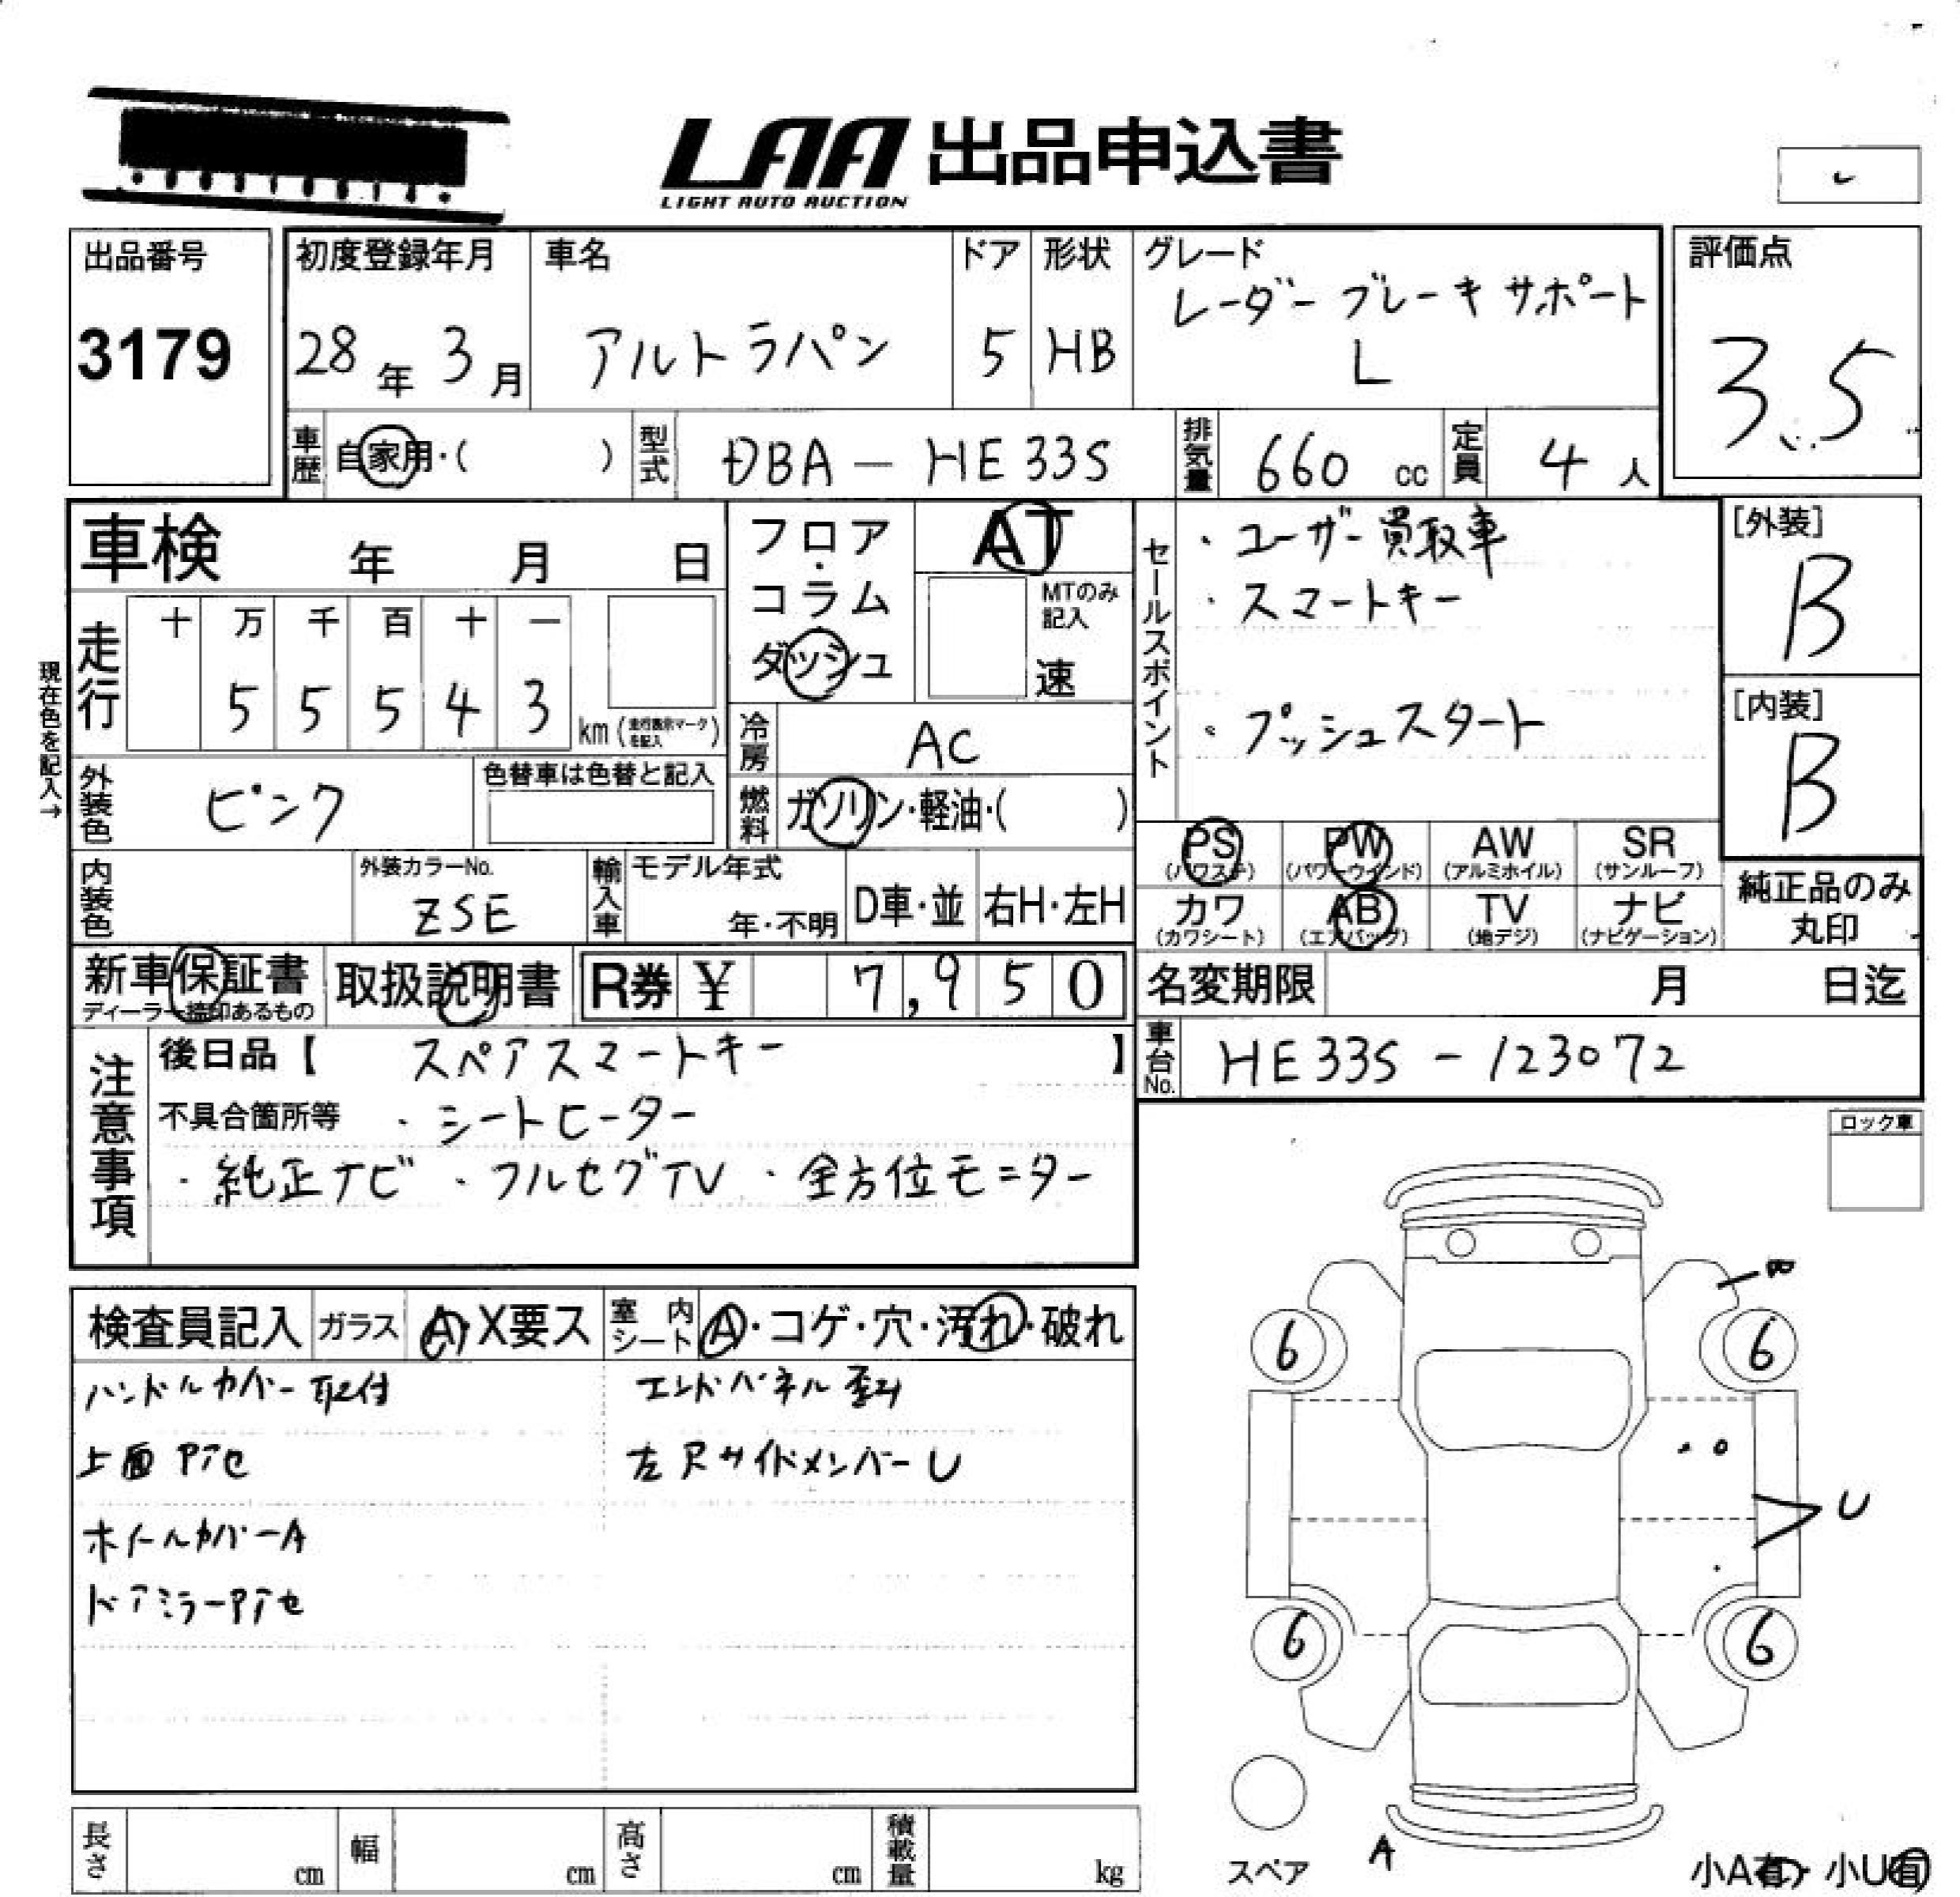 LAA 出品申込書
LIGHT AUTO AUCTION
出品番号
3179
初度登録年月
28年 3月
車名
アルトラパン
ドア
5
形状
HB
グレード
レーダーブレーキサポート
L
評価点
3.5
車歴
自家用・( )
型式
DBA - HE33S
排気量
660 cc
定員
4 人
車検 年 月 日
フロア・コラム
ダッシュ
AT
MTのみ記入
速
セールスポイント
・ユーザー買取車
・スマートキー
・プッシュスタート
[外装]
B
[内装]
B
現在色を記入→
走行
十 万 千 百 十 一
5 5 5 4 3
km (走行表示マークを記入)
冷房
AC
外装色
ピンク
色替車は色替と記入
燃料
ガソリン・軽油・( )
PS (パワステ)
PW (パワーウインド)
AW (アルミホイル)
SR (サンルーフ)
カワ (カワシート)
AB (エアバッグ)
TV (地デジ)
ナビ (ナビゲーション)
純正品のみ
丸印
内装色
外装カラーNo.
ZSE
輸入車
モデル年式
年・不明
D車・並
右H・左H
新車保証書
ディーラー捺印あるもの
取扱説明書
R券 ¥ 7,950
名変期限 月 日迄
車台No.
HE33S - 123072
注意事項
後日品【 スペアスマートキー 】
不具合箇所等 ・シートヒーター
・純正ナビ ・フルセグTV ・全方位モニター
ロック車
検査員記入
ガラス
A・X要ス
室内シート
A・コゲ・穴・汚れ・破れ
ハンドルカバー取付
エンドパネル歪み
上面Pアセ
左Rサイドメンバー U
ホイールカバーA
ドアミラーPアセ
6 6
U
6 6
スペア
A
小A有・小U有
長さ cm
幅 cm
高さ cm
積載量 kg